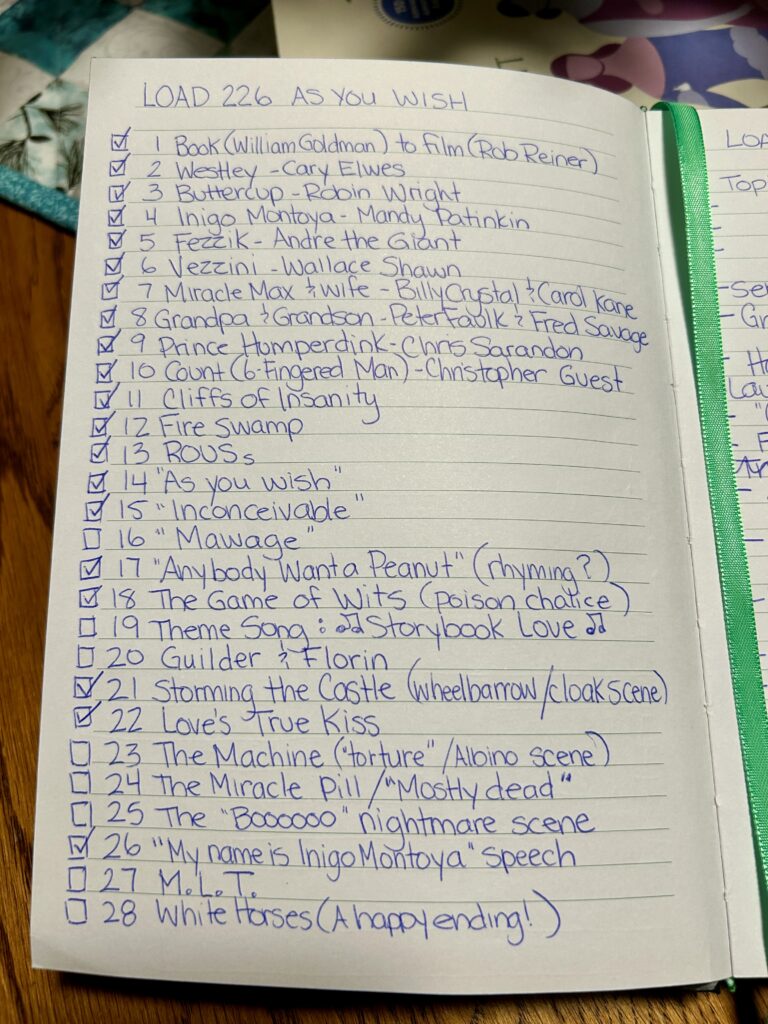 LOAD 226 AS YOU WISH
1 Book (William Goldman) to film (Rob Reiner)
2 Westley - Cary Elwes
3 Buttercup - Robin Wright
4 Inigo Montoya - Mandy Patinkin
5 Fezzik - Andre the Giant
6 Vezzini - Wallace Shawn
7 Miracle Max & wife - Billy Crystal & Carol Kane
8 Grandpa & Grandson - Peter Faulk & Fred Savage
9 Prince Humperdink - Chris Sarandon
10 Count (6-Fingered Man) - Christopher Guest
11 Cliffs of Insanity
12 Fire Swamp
13 ROUSs
14 "As you wish"
15 "Inconceivable"
16 "Mawage"
17 "Anybody Want a Peanut" (rhyming?)
18 The Game of Wits (poison chalice)
19 Theme Song : ♫ Storybook Love ♫
20 Guilder & Florin
21 Storming the Castle (wheelbarrow/cloak scene)
22 Love's True Kiss
23 The Machine ("torture" / Albino scene)
24 The Miracle Pill / "Mostly dead"
25 The "Boooooo" nightmare scene
26 "My name is Inigo Montoya" speech
27 M.L.T.
28 White Horses (A happy ending!)
LOA
Top